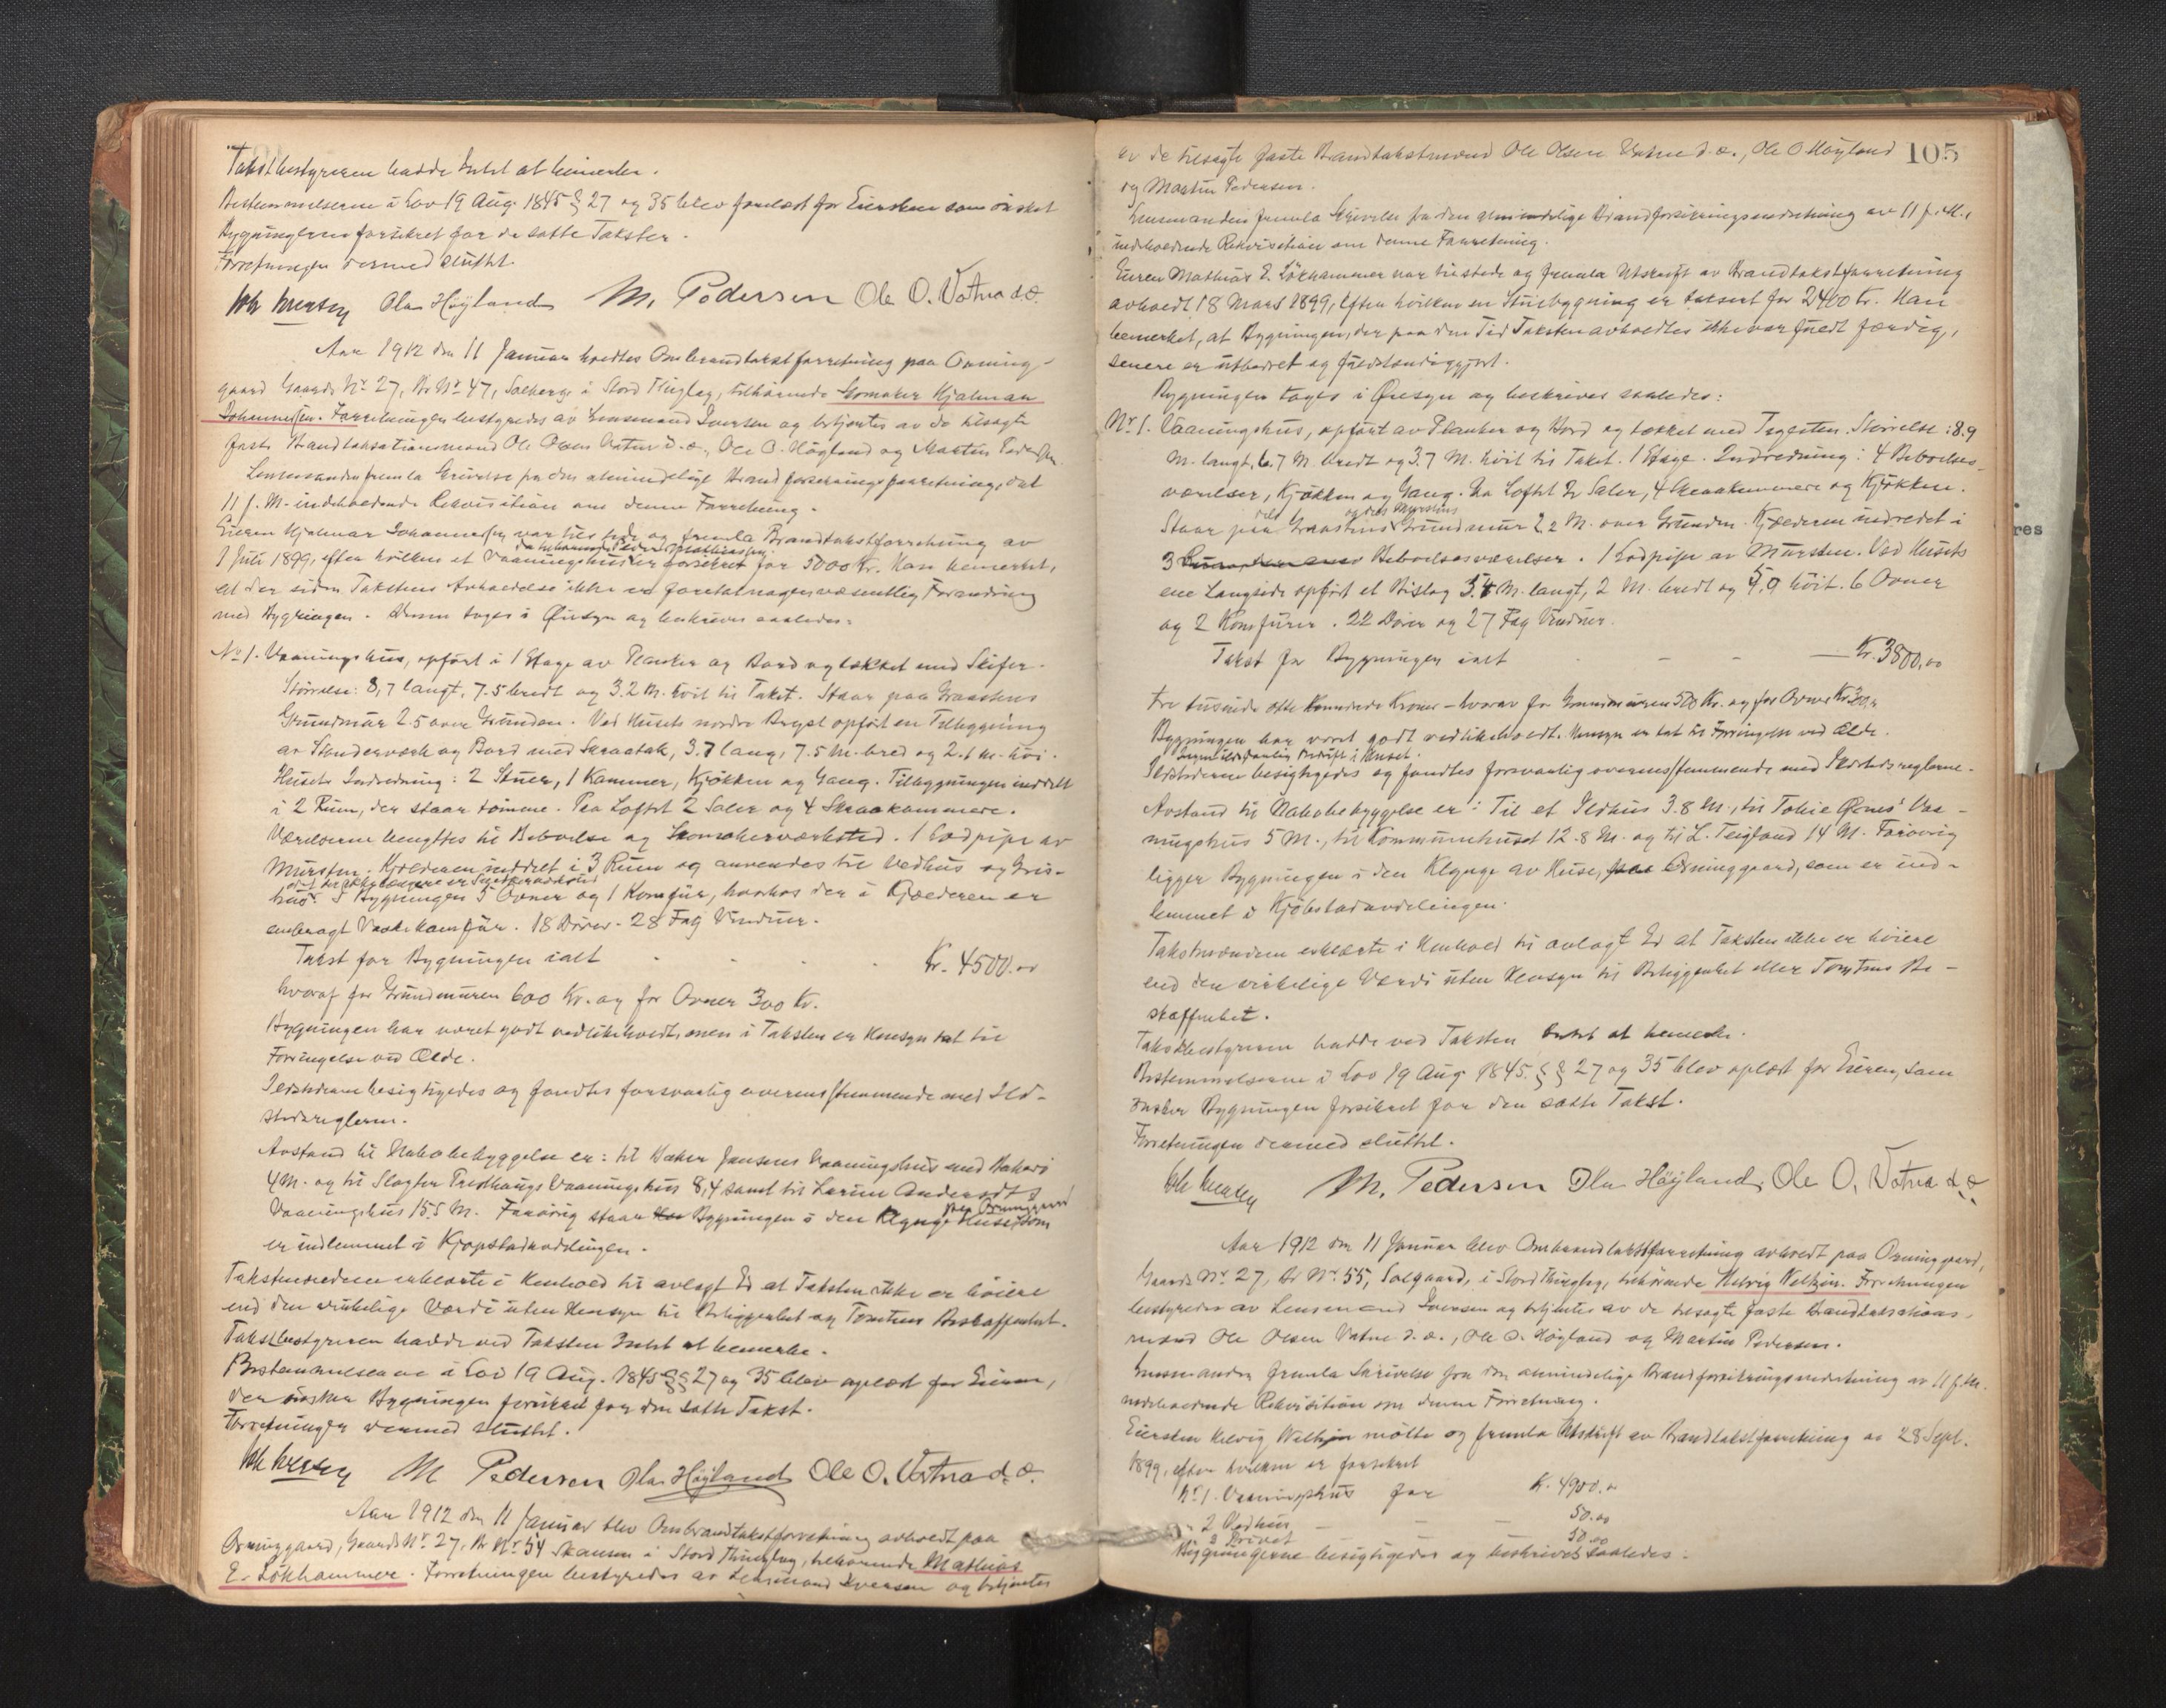 Takstbestyreren hadde Intet at bemerke.
Bestemmelserne i Lov 19 Aug. 1845 § 27 og 35 blev forelæst for Eiersken som ønsket
Bygningerne forsikret for de satte Takster.
Forretningen dermed sluttet.
Ola Høyland M. Pedersen Ole O. Vatna d.æ.
Aar 1912 den 11 Januar holdtes Ombrandtakstforretning paa Orning-
gaard Gaards Nr. 27, Br Nr. 47, Solberg i Stord Thinglag, tilhørende Skomaker Hjalmar
Johannessen. Forretningen bestyredes av Lensmand Iversen og betjentes av de tilsagte
faste Brandtaksationsmænd Ole Olsen Vatne d.æ., Ole O. Høgland og Martin Pedersen.
Lensmanden fremla Skrivelse fra den almindelige Brandforsikringsforretning, dat
11 f. M. indeholdende Rekvisition om denne Forretning.
Eieren Hjalmar Johannessen var tilstede og fremla Brandtakstforretning av
1 Juli 1899, efter hvilken et Vaaningshus er forsikret for 5000 Kr. Han bemerket,
at der siden Takstens Avholdelse ikke er foretat nogen væsentlig Forandring
med Bygningen. Denne toges i Øiesyn og beskrives saaledes:
No 1. Vaaningshus, opført i 1 Etage av Planker og Bord og tækket med Skifer.
Størrelse: 8,7 langt, 7.5 bredt og 3.2 M. høit til Taket. Staar paa Graastens
Grundmur 2.5 over Grunden. Ved Husets nordre Bryst opført en Tilbygning
av Stenderverk og Bord med Skraatak, 3.7 lang, 7.5 M. bred og 2.1 M. høi.
Husets Indredning: 2 Stuer, 1 Kammer, Kjøkken og Gang. Tilbygningen inddelt
i 2 Rum, der staar tomme. Paa Loftet 2 Saler og 4 Skraakammere.
Værelserne benyttes til Beboelse og Skomakerværksted. 1 Lodpipe av
Mursten. Kjælderen inddelt i 3 Rum og anvendes til Vedhus og Gris-
hus. I Bygningen 5 Ovner og 1 Komfür, hvorhos der i Kjælderen er
anbragt Vaskekomfür. 18 Dører. 28 Fag Vinduer.
Takst for Bygningen ialt Kr. 4500.00
hvoraf for Grundmuren 600 Kr. og for Ovner 300 Kr.
Bygningen har været godt vedlikeholdt, men i Taksten er Hensyn tat til
Forringelse ved Ælde.
Ildstederne besigtigedes og fandtes forsvarlig overensstemmende med Ild-
stedsreglerne.
Avstand til Nabobebyggelse er: til Baker Jensens Vaaningshus med Bakeri
4 M. og til Slagter Vaaningshus 8,4 samt til
Vaaningshus 15.5 M. Forøvrig staar Bygningen i den Klynge Huse paa Orninggaard som
er indlemmet i Kjøpstadavdelingen.
Takstmændene erklærte i Henhold til avlagt Ed at Taksten ikke er høiere
end den virkelige Værdi uten Hensyn til Beliggenhet og Tomtens Beskaffenhet.
Takstbestyreren hadde ved Taksten Intet at bemerke.
Bestemmelserne i Lov 19 Aug. 1845 §§ 27 og 35 blev oplæst for Eieren,
der ønsker Bygningen forsikret for den satte Takst.
Forretningen dermed sluttet.
M Pedersen Ola Høyland Ole O. Vatna d.æ.
Aar 1912 den 11 Januar blev Ombrandtakstforretning avholdt paa
Orninggaard, Gaards Nr. 27, Br Nr. 54 Skansen i Stord Thinglag, tilhørende Mathias
E. Løkhammer. Forretningen bestyredes av Lensmand Iversen og betjentes
105
av de tilsagte faste Brandtakstmænd Ole Olsen Vatne d.æ., Ole O Høyland
og Martin Pedersen.
Lensmanden fremla Skrivelse fra den almindelige Brandforsikringsindretning av 11 f. M.,
indeholdende Rekvisition om denne Forretning.
Eieren Mathias E. Løkhammer var tilstede og fremla Utskrift av Brandtakstforretning
avholdt 18 Mars 1899, efter hvilken en Stuebygning er taksert for 2400 Kr. Han
bemerket, at Bygningen, der paa den Tid Taksten avholdtes ikke var fuldt færdig,
senere er utbedret og fuldstændiggjort.
Bygningen toges i Øiesyn og beskrives saaledes:
Nr. 1. Vaaningshus, opført av Planker og Bord og tækket med Tegelsten. Størrelse: 8.9
M. langt, 6.7 M bredt og 3.7 M. høit til Taket. 1 Etage. Indredning: 4 Beboelses-
værelser, Kjøkken og Gang. Paa Loftet 2 Saler, 4 Skraakammere og Kjøkken.
Staar paa dels Graastens og dels Murstens Grundmur 2.2 M. over Grunden. Kjælderen indredet i
3 Beboelsesværelser. 1 Lodpipe av Mursten. Ved Husets
ene Langside opført et Bislag 3.4 M. langt, 2 M. bredt og høit. 6 Ovner
og 2 Komfürer. 22 Dører og 27 Fag Vinduer.
Takst for Bygningen ialt Kr. 3800.00
tre tusinde otte hundrede Kroner - hvorav for Grundmuren 500 Kr. og for Ovner Kr 300,00
Bygningen har været godt vedlikeholdt. Hensyn er tat til Forringelse ved Ælde.
Ingen ildsfarlig Bedrift i Huset.
Ildstederne besigtigedes og fandtes forsvarlig overensstemmende med Ildstedsreglerne.
Avstand til Nabobebyggelse er: Til et Ildhus 3.8 M., til Tobie Øknes' Vaa-
ningshus 5 M., til Kommunehuset 12.8 M. og til L. Teigland 14 M. Forøvrig
ligger Bygningen i den Klynge av Huse, paa Orninggaard, som er ind-
lemmet i Kjøbstadavdelingen.
Takstmændene erklærte i Henhold til avlagt Ed at Taksten ikke er høiere
end den virkelige Værdi uten Hensyn til Beliggenhet eller Tomtens Be-
skaffenhet.
Takstbestyreren hadde ved Taksten Intet at bemerke.
Bestemmelserne i Lov 19 Aug. 1845. §§ 27 og 35 blev oplæst for Eieren, som
ønsker Bygningen forsikret for den satte Takst.
Forretningen dermed sluttet.
M. Pedersen Ola Høyland. Ole O. Vatna d.æ
Aar 1912 den 11 Januar blev Ombrandtakstforretning avholdt paa Orninggaard,
Gaards Nr. 27, Br Nr. 55, Solgaard, i Stord Thinglag, tilhørende Helvig Forretningen
bestyredes av Lensmand Iversen og betjentes av de tilsagte faste Brandtaksations-
mænd Ole Olsen Vatne d.æ., Ole O. Høgland og Martin Pedersen.
Lensmanden fremla Skrivelse fra den almindelige Brandforsikringsindretning av 11 f. M.
indeholdende Rekvisition om denne Forretning.
Eiersken Helvig møtte og fremla Utskrift av Brandtakstforretning av 28 Sept.
1899, efter hvilken er forsikret
Nr. 1. Vaaningshus for Kr. 4900.00
" 2 Vedhus 50.00
" 3 Privet 50.00
Bygningerne besigtigedes og beskrives saaledes: